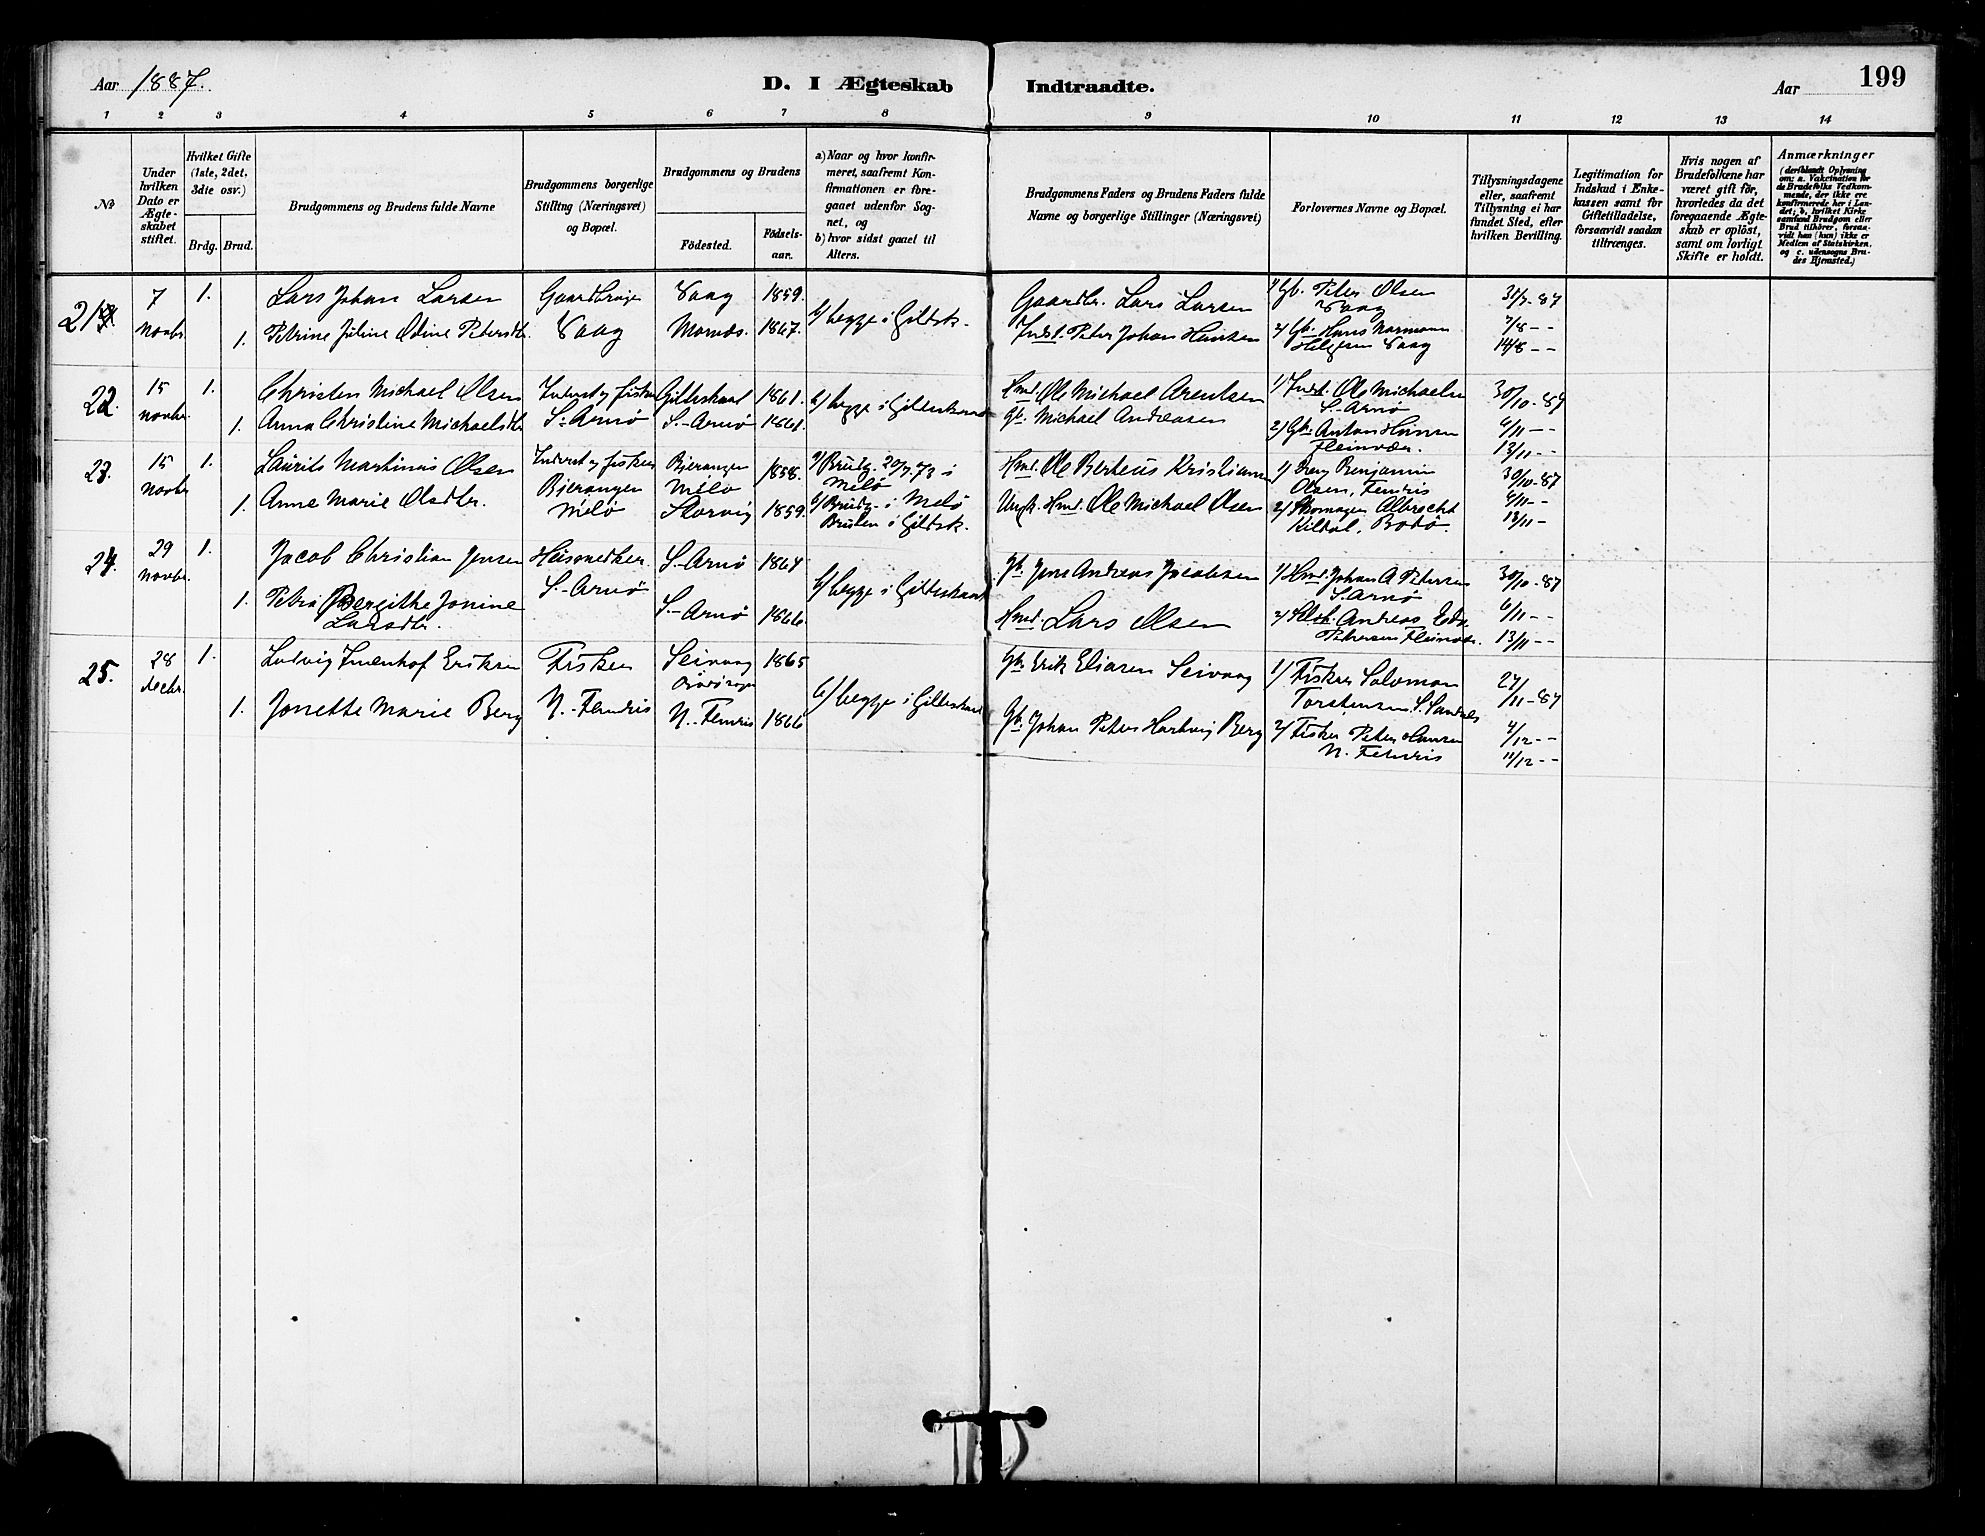 Aar 1887.
D. I Ægteskab Indtraadte.
Aar
199
1 2 3 4 5 6 7 8 9 10 11 12 13 14
No
Under hvilken Dato er Ægteskabet stiftet.
Hvilket Gifte (1ste, 2det, 3die osv.)
Brdg. Brud.
Brudgommens og Brudens fulde Navne
Brudgommens borgerlige Stilling (Næringsvei) og Bopæl.
Brudgommens og Brudens
Födested.
Födselsaar.
a) Naar og hvor konfirmeret, saafremt Konfirmationen er foregaaet udenfor Sognet, og
b) hvor sidst gaaet til Alters.
Brudgommens Faders og Brudens Faders fulde Navne og borgerlige Stillinger (Næringsvei)
Forlovernes Navne og Bopæl.
Tillysningsdagene eller, saafremt Tillysning ei har fundet Sted, efter hvilken Bevilling.
Legitimation for Indskud i Enkekassen samt for Giftetilladelse, forsaavidt saadan tiltrænges.
Hvis nogen af Brudefolkene har været gift för, hvorledes da det foregaaende Ægteskab er oplöst, samt om lovligt Skifte er holdt.
Anmærkninger (deriblandt Oplysning om: a. Vakcination for de Brudefolks Vedkommende, der ikke ere konfirmerede her i Landet; b. hvilket Kirkesamfund Brudgom eller Brud tilhörer, forsaavidt han (hun) ikke er Medlem af Statskirken. og c. udensogns Brudes Hjemsted.)
21 7 novbr. 1. Lars Johan Larsen Gaardbruger Vaag Vaag 1859. b/ begge i Gildsk. Gaardbr. Lars Larsen 1/ Gb. Peter Olsen Vaag 31/7-87
1. Petrine Juline Odine Petersdtr. 1867. Indst. Peter Johan Hansen 2/ Gb. Hans Normann Vaag 7/8 -- 14/8 --
22. 15 novbr. 1. Christen Michael Olsen Inderst og fisker S.-Arnø Gildeskaal 1861. b/ begge i Gildeskaal Hmd. Ole Michael Arentsen 1) Indst. Ole Michaelsen S.-Arnø 30/10-87
1. Anna Christine Michaelsdtr. S.-Arnø 1861. Gb. Michael Andreasen 2) Gb. Anton Hansen Fleinvær. 6/11 -- 13/11 --
23. 15 novbr. 1. Laurits Martinus Olsen Inderst og fisker Bjerangen Melø Bjerangen Melø 1858. a/ Brudg. 20/7 73 i Melø Hmd. Ole Berteus Kristiansen 1) Benjamin Olsen, Femris 30/10-87
1. Anne Marie Olsdtr. Storvig 1859. b/ Brudg. i Melø Bruden i Gildsk. Hmd. Ole Michael Olsen 2/ Skomager Albrecht Kildal, Bodø. 6/11 -- 13/11 -
24. 29 novbr. 1. Jacob Christian Jensen S.-Arnø S.-Arnø 1864 b/ begge i Gildeskaal Gb. Jens Andreas Jacobsen 1) Hmd. Johan A Petersen S. Arnø 30/10-87
1. Petra Bergithe Jonine Larsdtr. S.-Arnø 1866. Hmd. Lars Olsen 2/ Andreas Petersen Fleinvær. 6/11 -- 13/11 --
25. 28 decbr. 1. Ludvig Imenhof Eriksen Fisker N.-Femris Seivaag 1865 b/ begge i Gildeskaal Gb. Erik Eliasen Seivaag 1/ Fisker Salomon Torstensen S. Sandnes 27/11-87
1. Jonette Marie Berg N.-Femris 1866 Gb. Johan Peter Hartvig Berg 2/ Fisker Peter Hansen N. Femris 4/12 -- 11/12 --